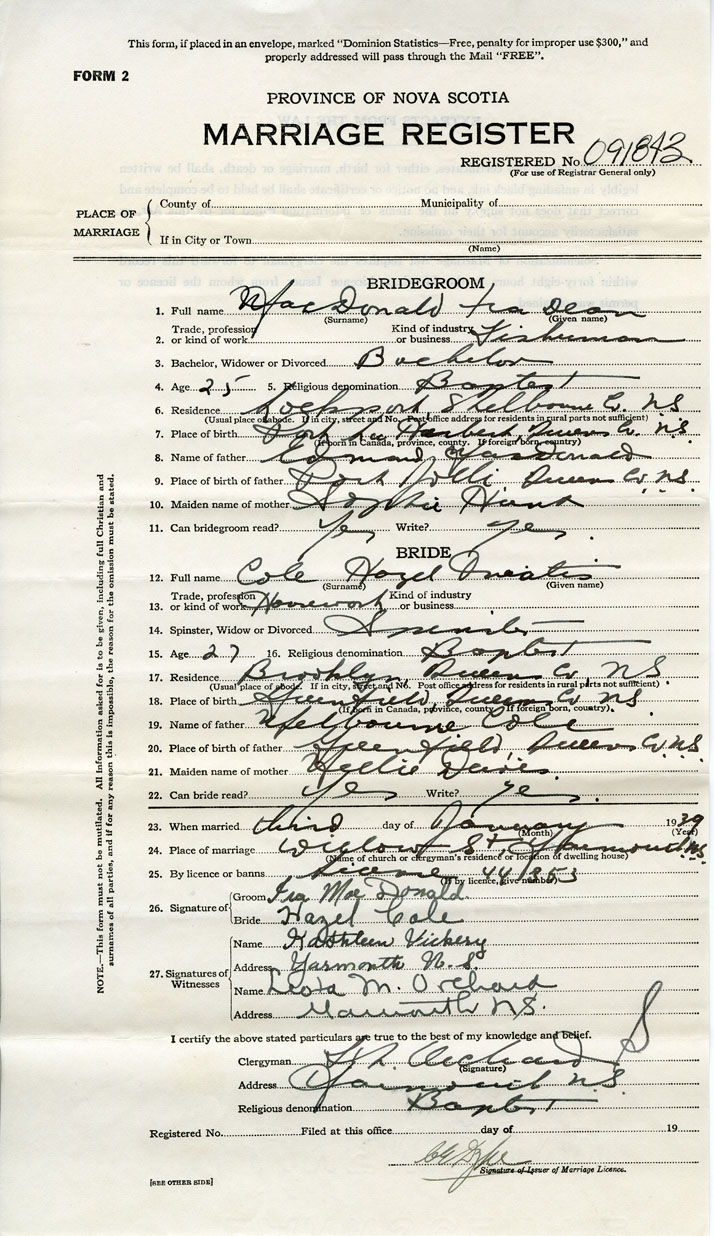 This form, if placed in an envelope, marked "Dominion Statistics—Free, penalty for improper use $300," and
properly addressed will pass through the Mail "FREE".
FORM 2
PROVINCE OF NOVA SCOTIA
MARRIAGE REGISTER
REGISTERED No. 091843
(For use of Registrar General only)
PLACE OF MARRIAGE
County of Municipality of
If in City or Town
(Name)
BRIDEGROOM
1. Full name MacDonald Ira Dean
(Surname) (Given name)
2. Trade, profession or kind of work Kind of industry or business Fisherman
3. Bachelor, Widower or Divorced Bachelor
4. Age 25 5. Religious denomination Baptist
6. Residence Lockeport Shelburne Co. N.S.
(Usual place of abode. If in city, street and No. Post office address for residents in rural parts not sufficient)
7. Place of birth Port Harbert Queens Co. N.S.
(If born in Canada, province, county. If foreign born, country)
8. Name of father Edmund MacDonald
9. Place of birth of father Port Jolli Queens Co N.S.
10. Maiden name of mother Sophie Hunt
11. Can bridegroom read? Yes Write? Yes.
BRIDE
12. Full name Cole Hazel
(Surname) (Given name)
13. Trade, profession or kind of work Housework Kind of industry or business
14. Spinster, Widow or Divorced Spinster
15. Age 27 16. Religious denomination Baptist
17. Residence Brooklyn Queens Co N.S.
(Usual place of abode. If in city, street and No. Post office address for residents in rural parts not sufficient)
18. Place of birth Greenfield, Queens Co N.S.
(If born in Canada, province, county. If foreign born, country).
19. Name of father Melbourne Cole
20. Place of birth of father Greenfield Queens Co N.S.
21. Maiden name of mother Nellie Davis.
22. Can bride read? Yes Write? Yes.
23. When married third day of January 1939
(Month) (Year)
24. Place of marriage Willow St Yarmouth N.S.
(Name of church or clergyman's residence or location of dwelling house)
25. By licence or banns License 441853
(If by licence, give number)
26. Signature of
Groom Ira MacDonald
Bride Hazel Cole
27. Signatures of Witnesses
Name Kathleen Vickery
Address Yarmouth N.S.
Name Leota M. Orchard
Address Yarmouth N.S.
I certify the above stated particulars are true to the best of my knowledge and belief.
Clergyman Orchard
(Signature)
Address Yarmouth N.S.
Religious denomination Baptist
Registered No. Filed at this office day of 19
Signature of Issuer of Marriage Licence.
[SEE OTHER SIDE]
NOTE.—This form must not be mutilated. All information asked for is to be given, including full Christian and
surnames of all parties, and if for any reason this is impossible, the reason for the omission must be stated.